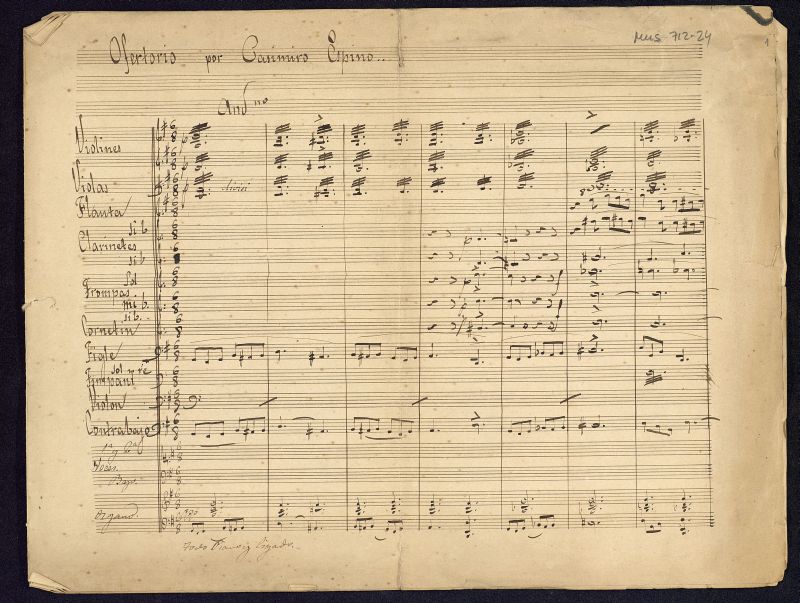 Mus 712-24
1
Ofertorio por Casimiro Espino..
And.no
Violines
Violas
divisi
Flauta
si b
Clarinetes
si b
Sol
Trompas
mi b.
si b.
Cornetin
Figle
sol y re
Timpani
Violon
Contrabajo
Voces.
Bajo.
Organo.